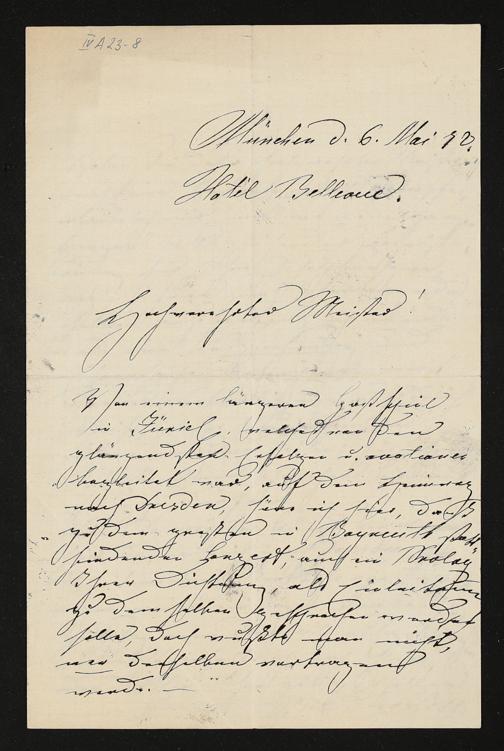 IV A 23-8
München d. 6. Mai 72.
Hôtel Bellevue.
Hochverehrter Meister!
Von einem längeren Gastspiel
in Zürich, welches von den
glänzendsten Erfolgen u. ovationen
begleitet war, auf dem Heimweg
nach Dresden, höre ich hier, daß
zu dem großen in Bayreuth statt
findenden Concert, ein Prolog
Ihrer Dichtung, als Einleitung
zu demselben gesprochen werden
solle, doch wüßte man nicht,
wer denselben vortragen
werde. —